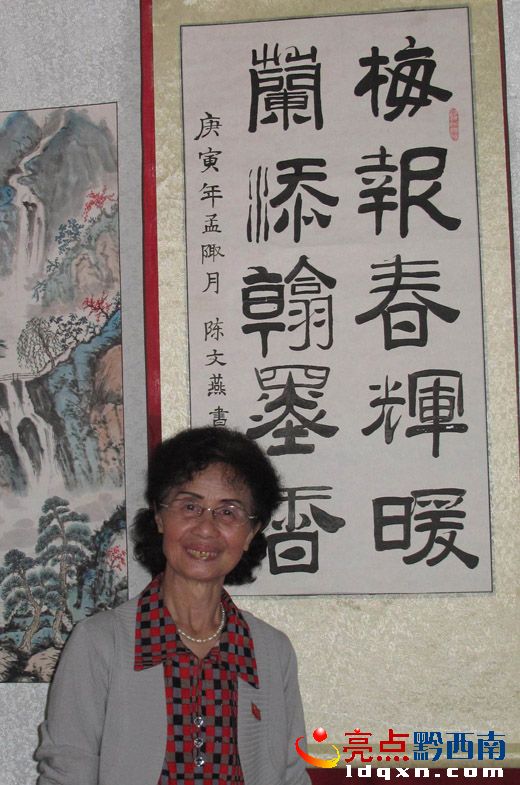 梅報春輝暖
蘭添翰墨香
庚寅年孟陬月 陈文燕書
亮点黔西南
ldqxn.com